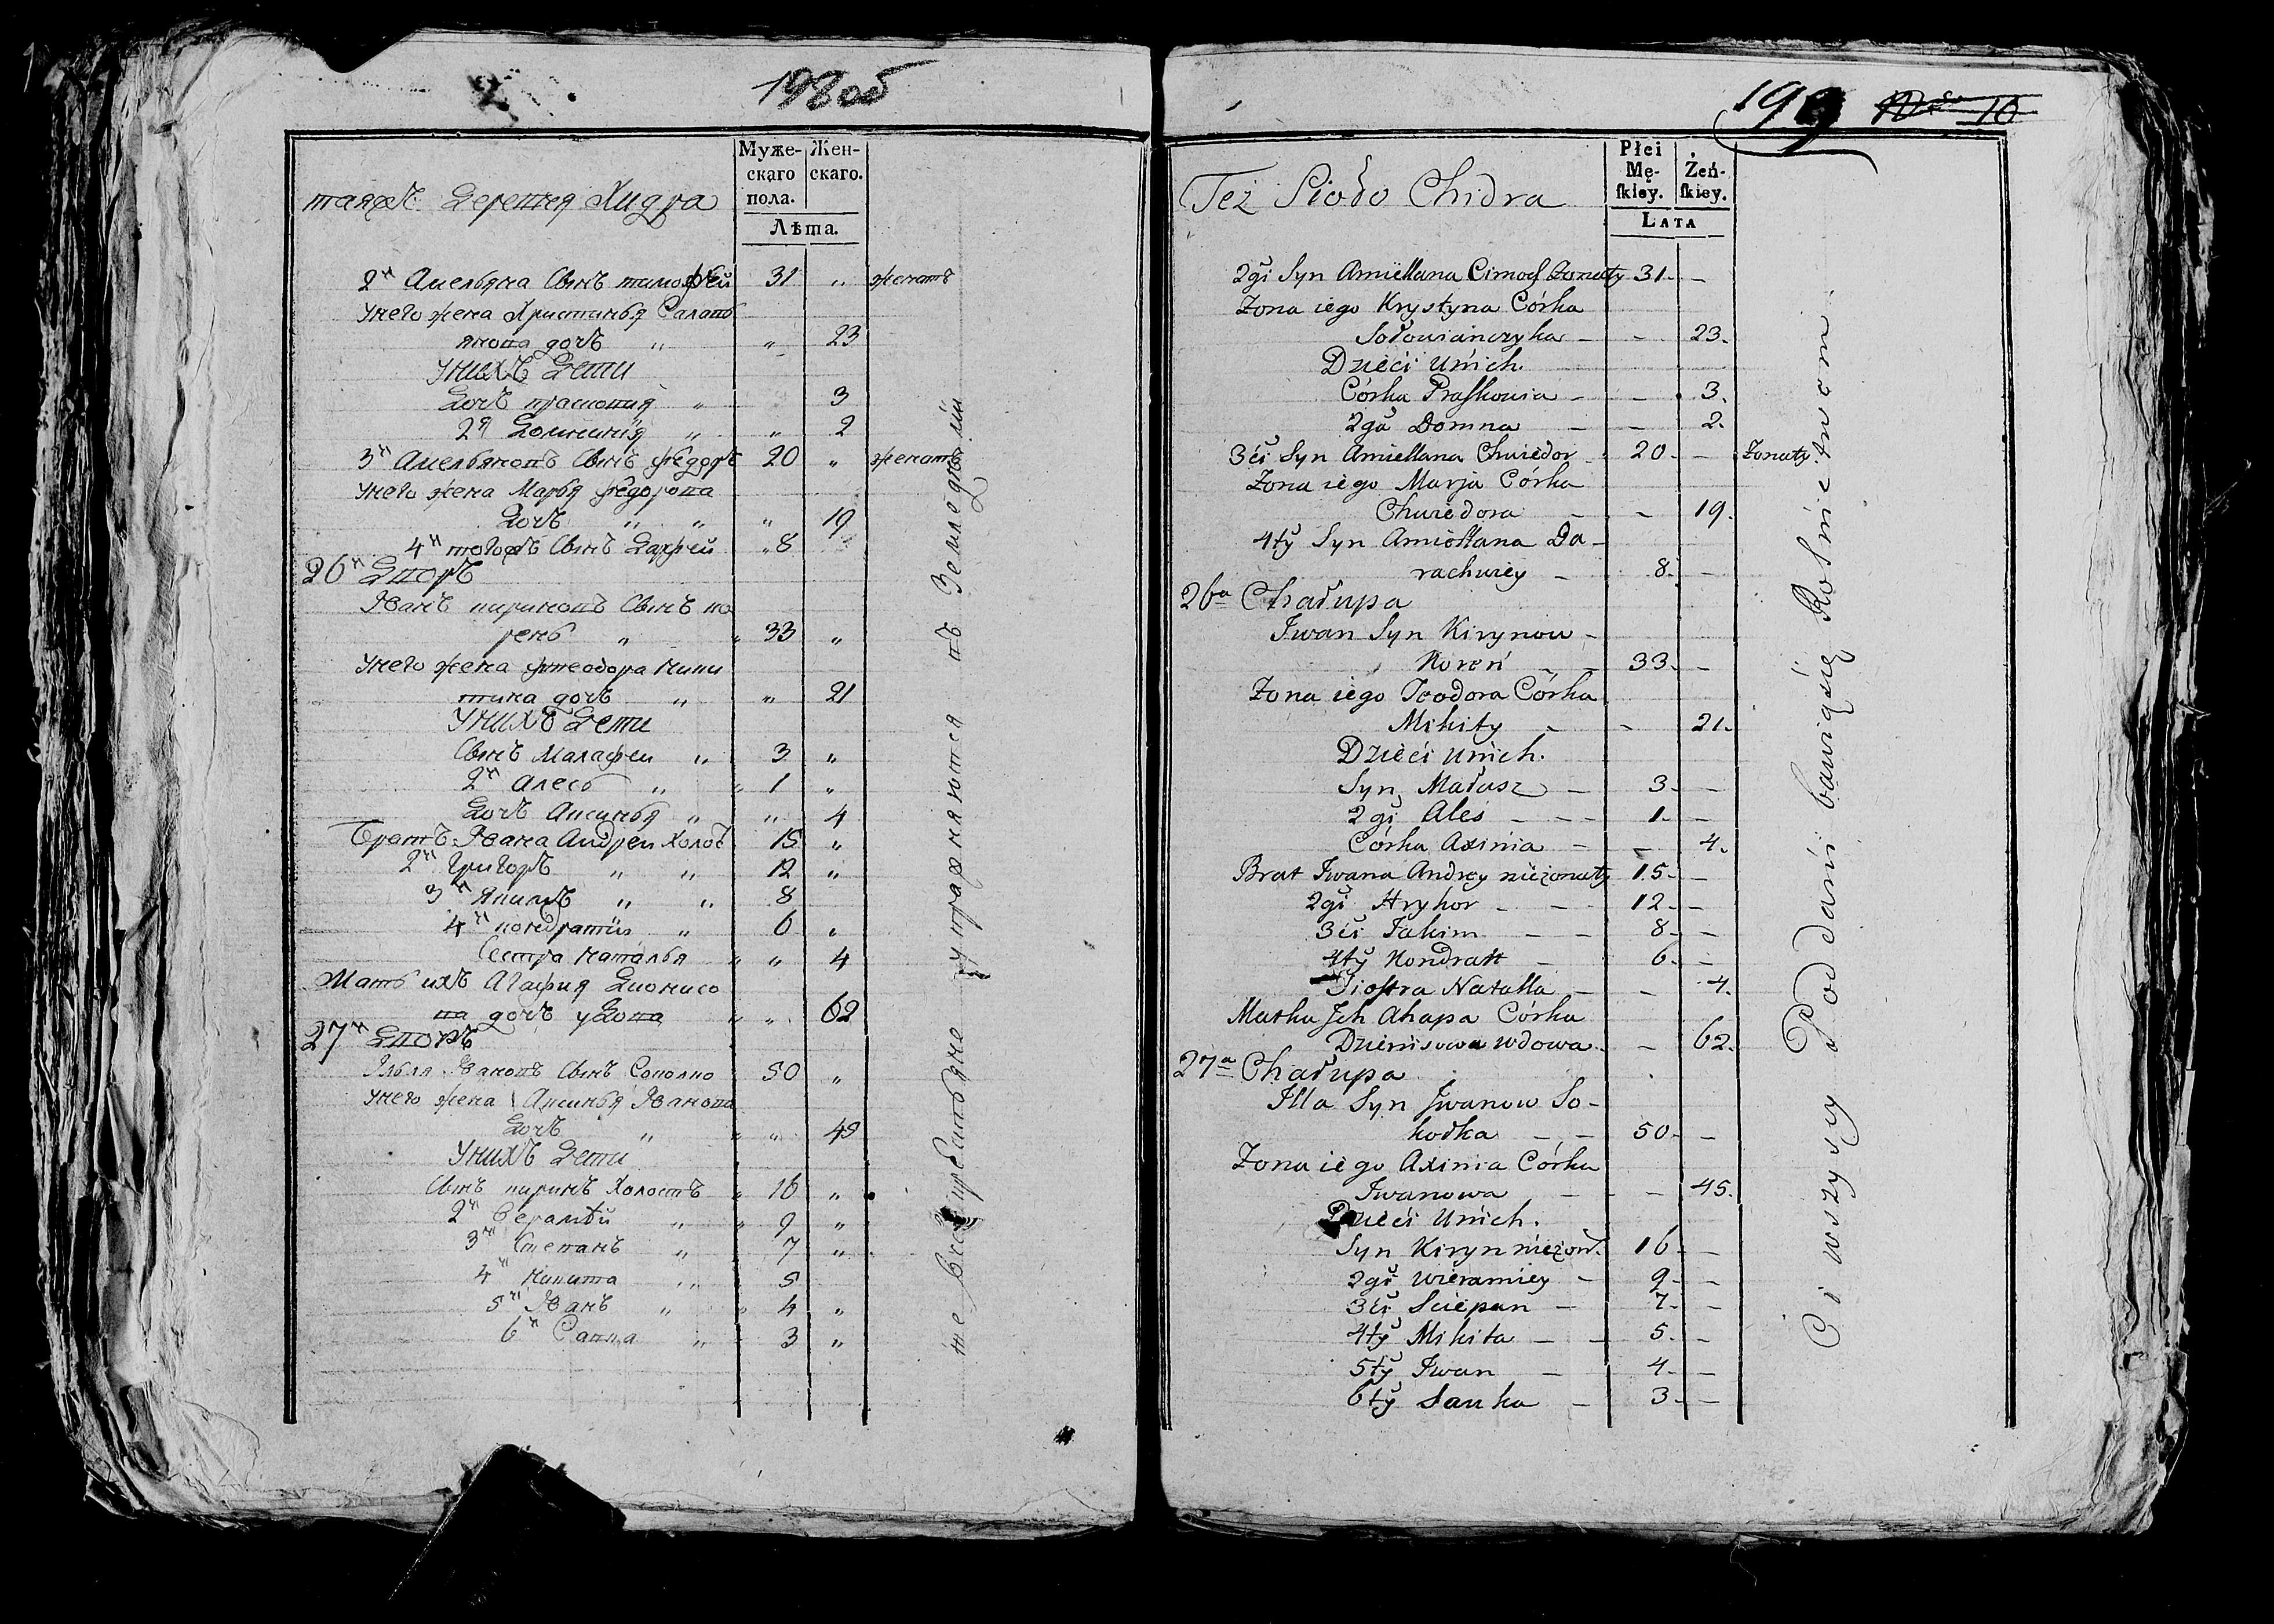 198 об
Муже-
скаго
пола.
Жен-
скаго.
Лѣта.
таяжъ Деревня Хидра
2й Амельяна Сынъ тимофей 31 " женатъ
Унего жена Христинья Салавь
янова дочь " " 23
Унихъ Дети
Дочь прасковия " 3
2я Домникия " " 2
3й Амельяновъ Сынъ федоръ 20 " женатъ
Унего жена Марья федорова
Дочь " " " 19
4й тогожъ Сынъ Дарфей " 8
26й Дворъ
Иванъ кириковъ Сынъ ко
рень " " 33 "
Унего жена фтеодора Мики
тина дочь " " 21
Унихъ Дети
Сынъ Малафеи " 3 "
2й Алесь " " 1 "
Дочь Аксинья " " 4
Братъ Ивана Андреи Холос 15 "
2й Григоръ " " 12 "
3й Якимъ " " 8
4й кондратий " 6 "
Сестра Наталья " " 4
Мать ихъ Агафия Дионисо
ва дочь удова " " 62
27й Дворъ
Илья Ивановъ Сынъ Соколко 50 "
Унего жена Аксинья Иванова
Дочь " " " 45
Унихъ Дети
Сынъ кирикъ Холостъ " 16 "
2й Верамѣй " " 9 "
3й Степанъ " 7 "
4й Микита " " 5
5й Иванъ " " 4 "
6й Савка " 3 "
те Все Крестьяне упражняются въ Земледѣлии
199 10
Płci
Mę-
skiey.
Żeń-
skiey.
Lata
Też Sioło Chidra
2gi Syn Amiellana Cimoch Żonaty 31 - -
Żona iego Krystyna Córka
Sołowiańczyka - - 23.
Dzieći Unich.
Córka Praskowia - - 3.
2ga Domna - - 2.
3ći Syn Amiellana Chwiedor 20 - - Żonaty
Żona iego Marja Córka
Chwiedora - - 19.
4ty Syn Amiellana Da-
rachwiey - 8. -
26a Chałupa
Iwan Syn Kirynow -
Koreń - - 33 - -
Żona iego Teodora Córka
Mikity - - 21.
Dzieći Unich.
Syn Małasz - 3 - -
2gi Aleś - - - 1 - -
Córka Axinia - - 4.
Brat Iwana Andrey nieżonaty 15 - -
2gi Hryhor - - - 12 - -
3ći Jakim - - 8 - -
4ty Kondratt - 6 - -
Siostra Natalla - - 4.
Matka Jch Ahapa Córka
Dzienisowa wdowa - - 62.
27a Chałupa
Illa Syn Jwanow So-
kołka - - 50 - -
Żona iego Axinia Córka
Jwanowa - - - 45.
Dzieći Unich.
Syn Kiryn nieżon. 16 - -
2gi Wieramiey - 9 - -
3ći Sciepan - 7 - -
4ty Mikita - - 5 - -
5ty Iwan - 4 - -
6ty Sauka - 3 - -
Ci wszyscy Poddani bawiąsię Rolnictwom